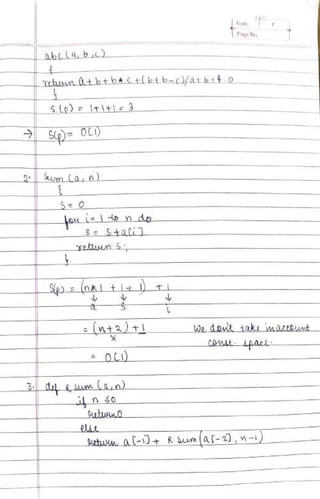 Date: / /
Page No.
abc (a, b, c)
{
return a + b + b * c + (b + b - c) / a + b + 4.0
}
S(p) = 1+1+1 = 3
→ S(p) = O(1)
2. Sum (a, n)
{
S = 0
for i = 1 to n do
S = S + a[i].
return S;
}
S(p) = (n*1 + 1 + 1) + 1
↓ ↓ ↓
a S i
= (n+2) + 1 We don't take in account
x const. space.
= O(1)
3. def R sum (a, n)
if n ≤0
return 0
else
return a[-1] + R sum (a[-2], n-1)